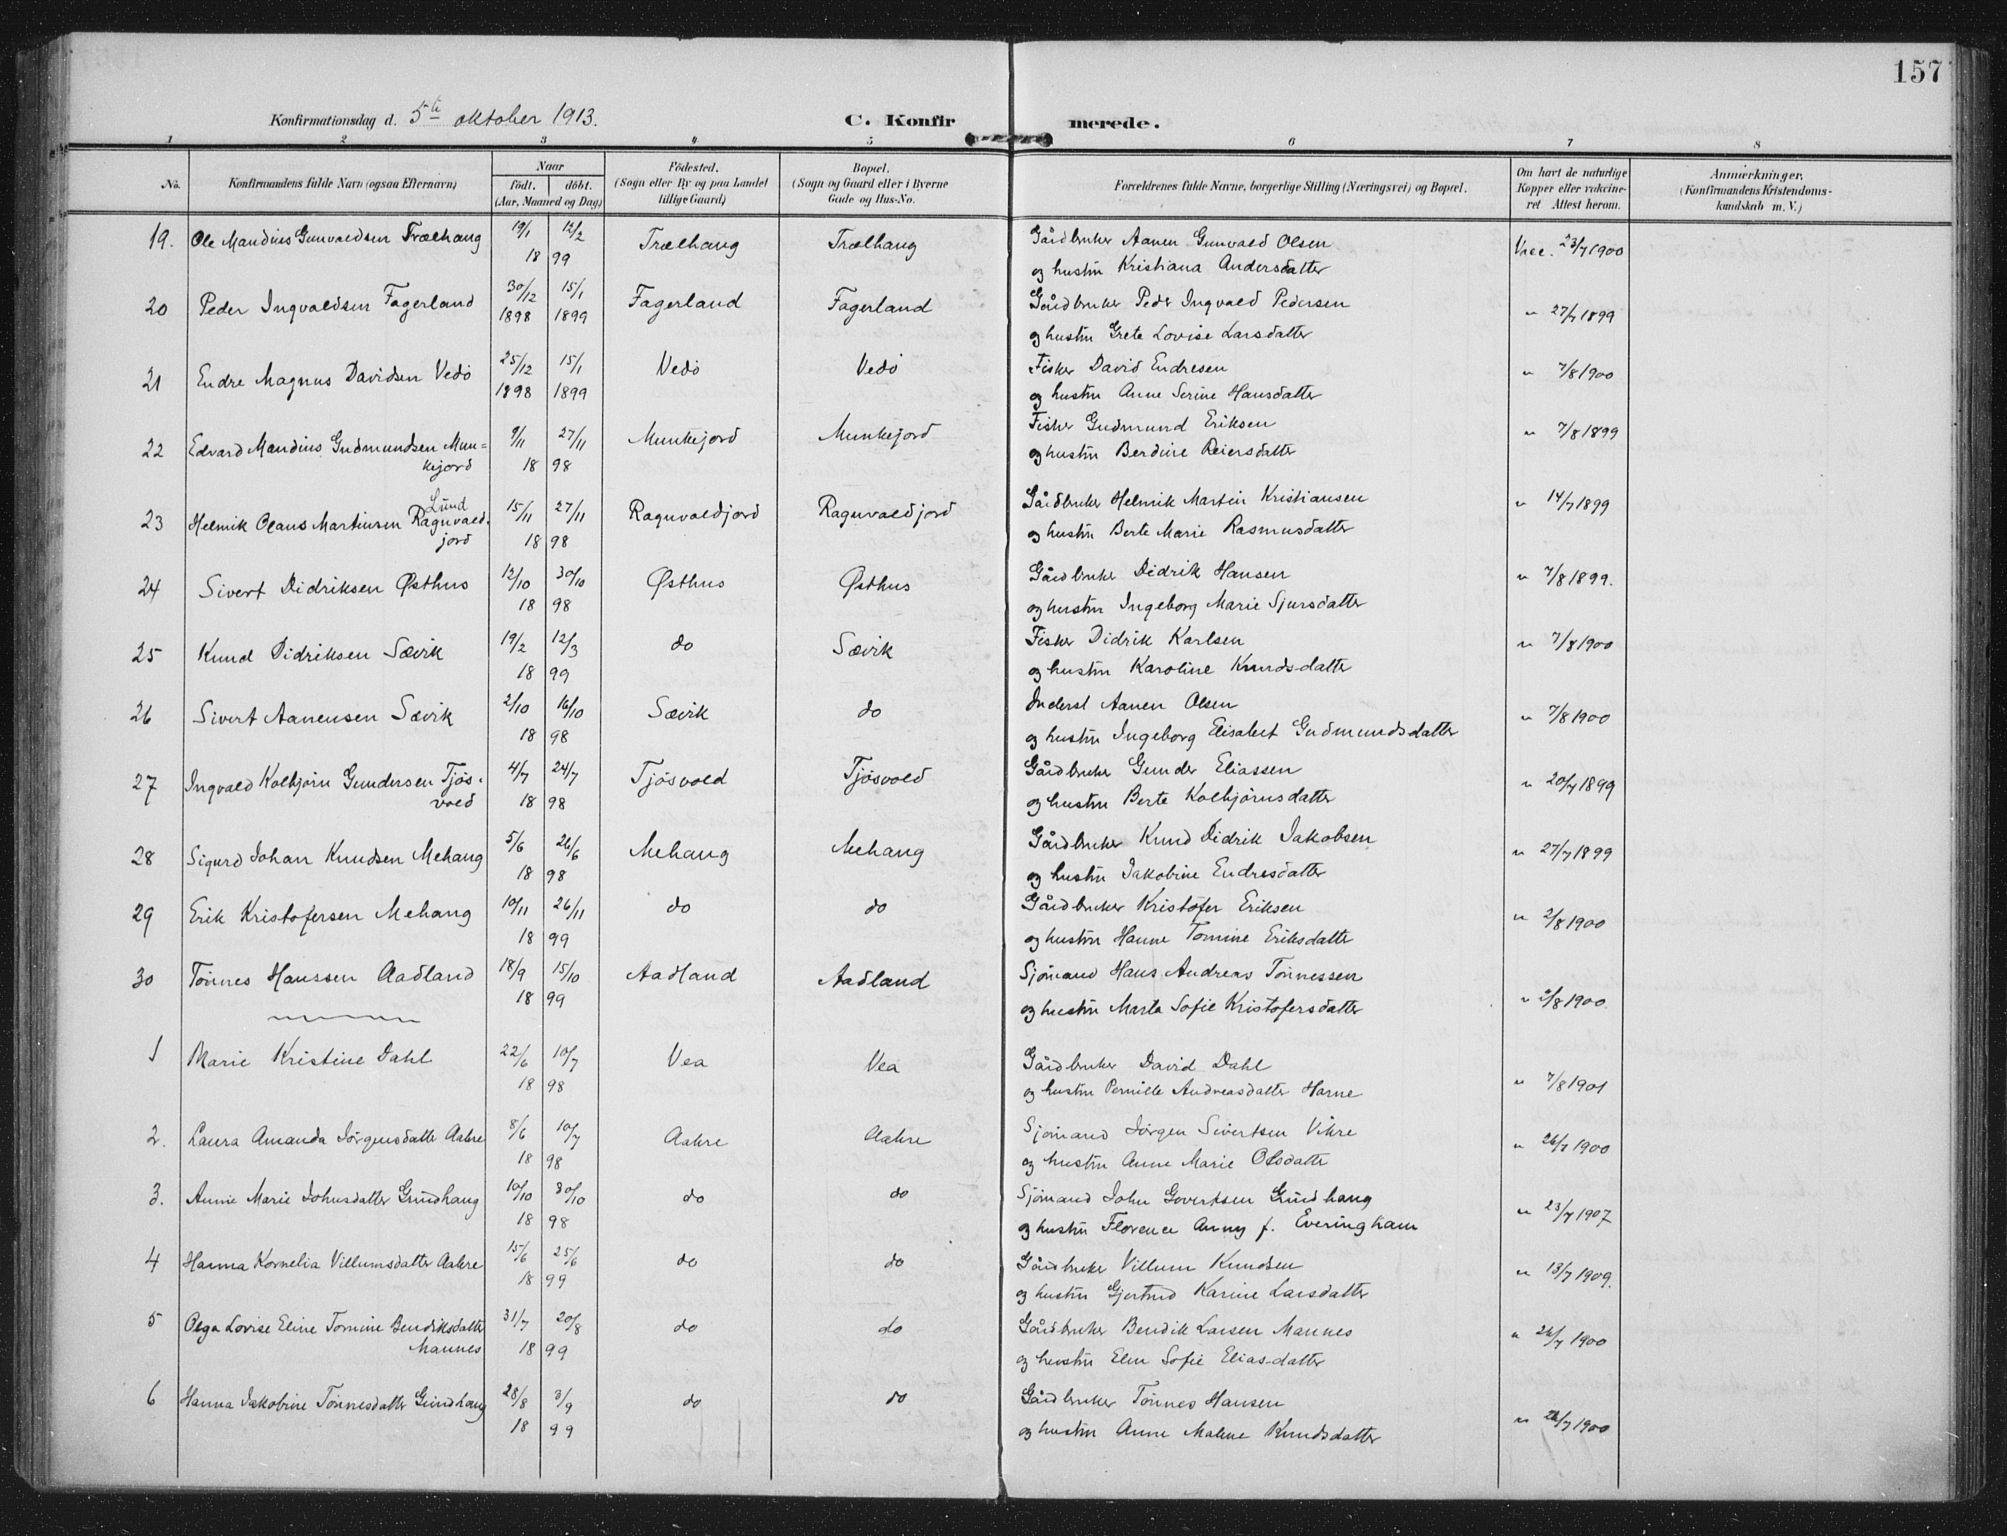 157
Konfirmationsdag d. 5te oktober 1913. C. Konfirmerede.
1 2 3 4 5 6 7 8
No. Konfirmandens fulde Navn (ogsaa Efternavn) Naar födt. döbt. (Aar, Maaned og Dag) Födested. (Sogn eller By og paa Landet tillige Gaard) Bopæl. (Sogn og Gaard eller i Byerne Gade og Hus-No. Forældrenes fulde Navne, borgerlige Stilling (Næringsvei) og Bopæl. Om havt de naturlige Kopper eller vakcineret Attest herom. Anmærkninger. (Konfirmandens Kristendomskundskab m. V.)
19. Ole Mandius Gunvaldsen Trælhaug 19/1 12/2 Trælhaug Trælhaug Gårdbruker Aanen Gunvald Olsen Vacc. 23/7 1900
18 99 og hustru Kristiana Andersdatter
20 Peder Ingvaldsen Fagerland 30/12 15/1 Fagerland Fagerland Gårdbruker Peder Ingvald Pedersen " 27/7 1899
1898 1899 og hustru Grete Lovise Larsdatter
21 Endre Magnus Davidsen Vedö 25/12 15/1 Vedö Vedö Fisker David Endresen " 7/8 1900
1898 1899 og hustru Anne Serine Hansdatter
22 Edvard Mandius Gudmundsen Mun= 9/11 27/11 Munkejord Munkejord Fisker Gudmund Eriksen " 7/8 1899
kejord 18 98 og hustru Berdine Reiersdatter
Lund
23 Helmik Olaus Martinsen Ragnvald- 15/11 27/11 Ragnvaldjord Ragnvaldjord Gårdbruker Helmik Martin Kristiansen " 14/7 1899
jord 18 98 og hustru Berte Marie Rasmusdatter
24 Sivert Didriksen Østhus 12/10 30/10 Østhus Østhus Gårdbruker Didrik Hansen " 7/8 1899.
18 98 og hustru Ingeborg Marie Sjursdatter
25 Knud Didriksen Sævik 19/2 12/3 do Sævik Fisker Didrik Karlsen " 7/8 1900
18 99 og hustru Karoline Knudsdatter
26 Sivert Aanensen Sævik 2/10 16/10 Sævik do Inderst Aanen Olsen " 7/8 1900
18 98 og hustru Ingeborg Elisabet Gudmundsdatter
27 Ingvald Kolbjörn Gundersen Tjös- 4/7 24/7 Tjösvold Tjösvold Gårdbruker Gunder Eliassen " 20/7 1899
vold 18 98 og hustru Berte Kolbjörnsdatter
28 Sigurd Johan Knudsen Mehaug 5/6 26/6 Mehaug Mehaug Gårdbruker Knud Didrik Jakobsen " 27/7 1899
18 98 og hustru Jakobine Endresdatter
29 Erik Kristofersen Mehaug 10/11 26/11 do do Gårdbruker Kristofer Eriksen " 2/8 1900
18 99 og hustru Hanne Tomine Eriksdatter
30 Tönnes Hanssen Aadland 18/9 15/10 Aadland Aadland Sjömand Hans Andreas Tönnessen
18 99 og hustru Marta Sofie Kristofersdatter " 2/8 1900.
1 Marie Kristine Dahl 22/6 10/7 Vea Vea Gårdbruker David Dahl
18 98 og hustru Pernille Andreasdatter Harne " 7/8 1901
2. Laura Amanda Jörgensdatter Aakre 8/6 10/7 Aakre Aakre Sjömand Jörgen Sivertsen Vikre " 26/7 1900
18 98 og hustru Anne Marie Olsdatter
3. Annie Marie Johnsdatter Grindhaug 10/10 30/10 do do Sjömand John Govertsen Grindhaug " 23/7 1907
18 98 og hustru Florence Anny f. Everingham
4 Hanna Kornelia Villumsdatter Aakre 15/6 25/6 do do Gårdbruker Villum Knudsen " 13/7 1909.
18 99 og hustru Gjertrud Karine Larsdatter
5 Olga Lovise Eline Tomine Bendiksdatter 31/7 20/8 do do Gårdbruker Bendik Larsen Mannes " 26/7 1900
Mannes 18 99 og hustru Elen Sofie Eliasdatter
6 Hanna Jakobine Tönnesdatter Grindhaug 28/8 3/9 do do Gårdbruker Tönnes Hansen
18 99 og hustru Anne Malene Knudsdatter " 26/7 1900